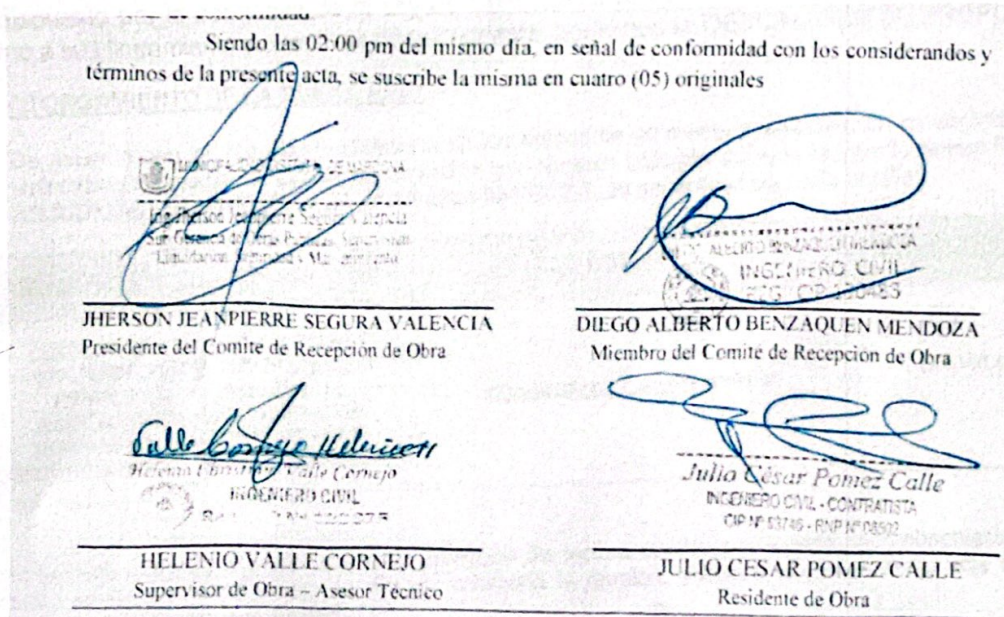 conformidad
Siendo las 02:00 pm del mismo día, en señal de conformidad con los considerandos y
términos de la presente acta, se suscribe la misma en cuatro (05) originales
Sub Gerencia de Obras
JHERSON JEANPIERRE SEGURA VALENCIA
Presidente del Comite de Recepción de Obra
INGENIERO CIVIL
DIEGO ALBERTO BENZAQUEN MENDOZA
Miembro del Comite de Recepción de Obra
Valle Cornejo Helenio
Valle Cornejo
INGENIERO CIVIL
HELENIO VALLE CORNEJO
Supervisor de Obra – Asesor Técnico
Julio César Pomez Calle
INGENIERO CIVIL - CONTRATISTA
JULIO CESAR POMEZ CALLE
Residente de Obra